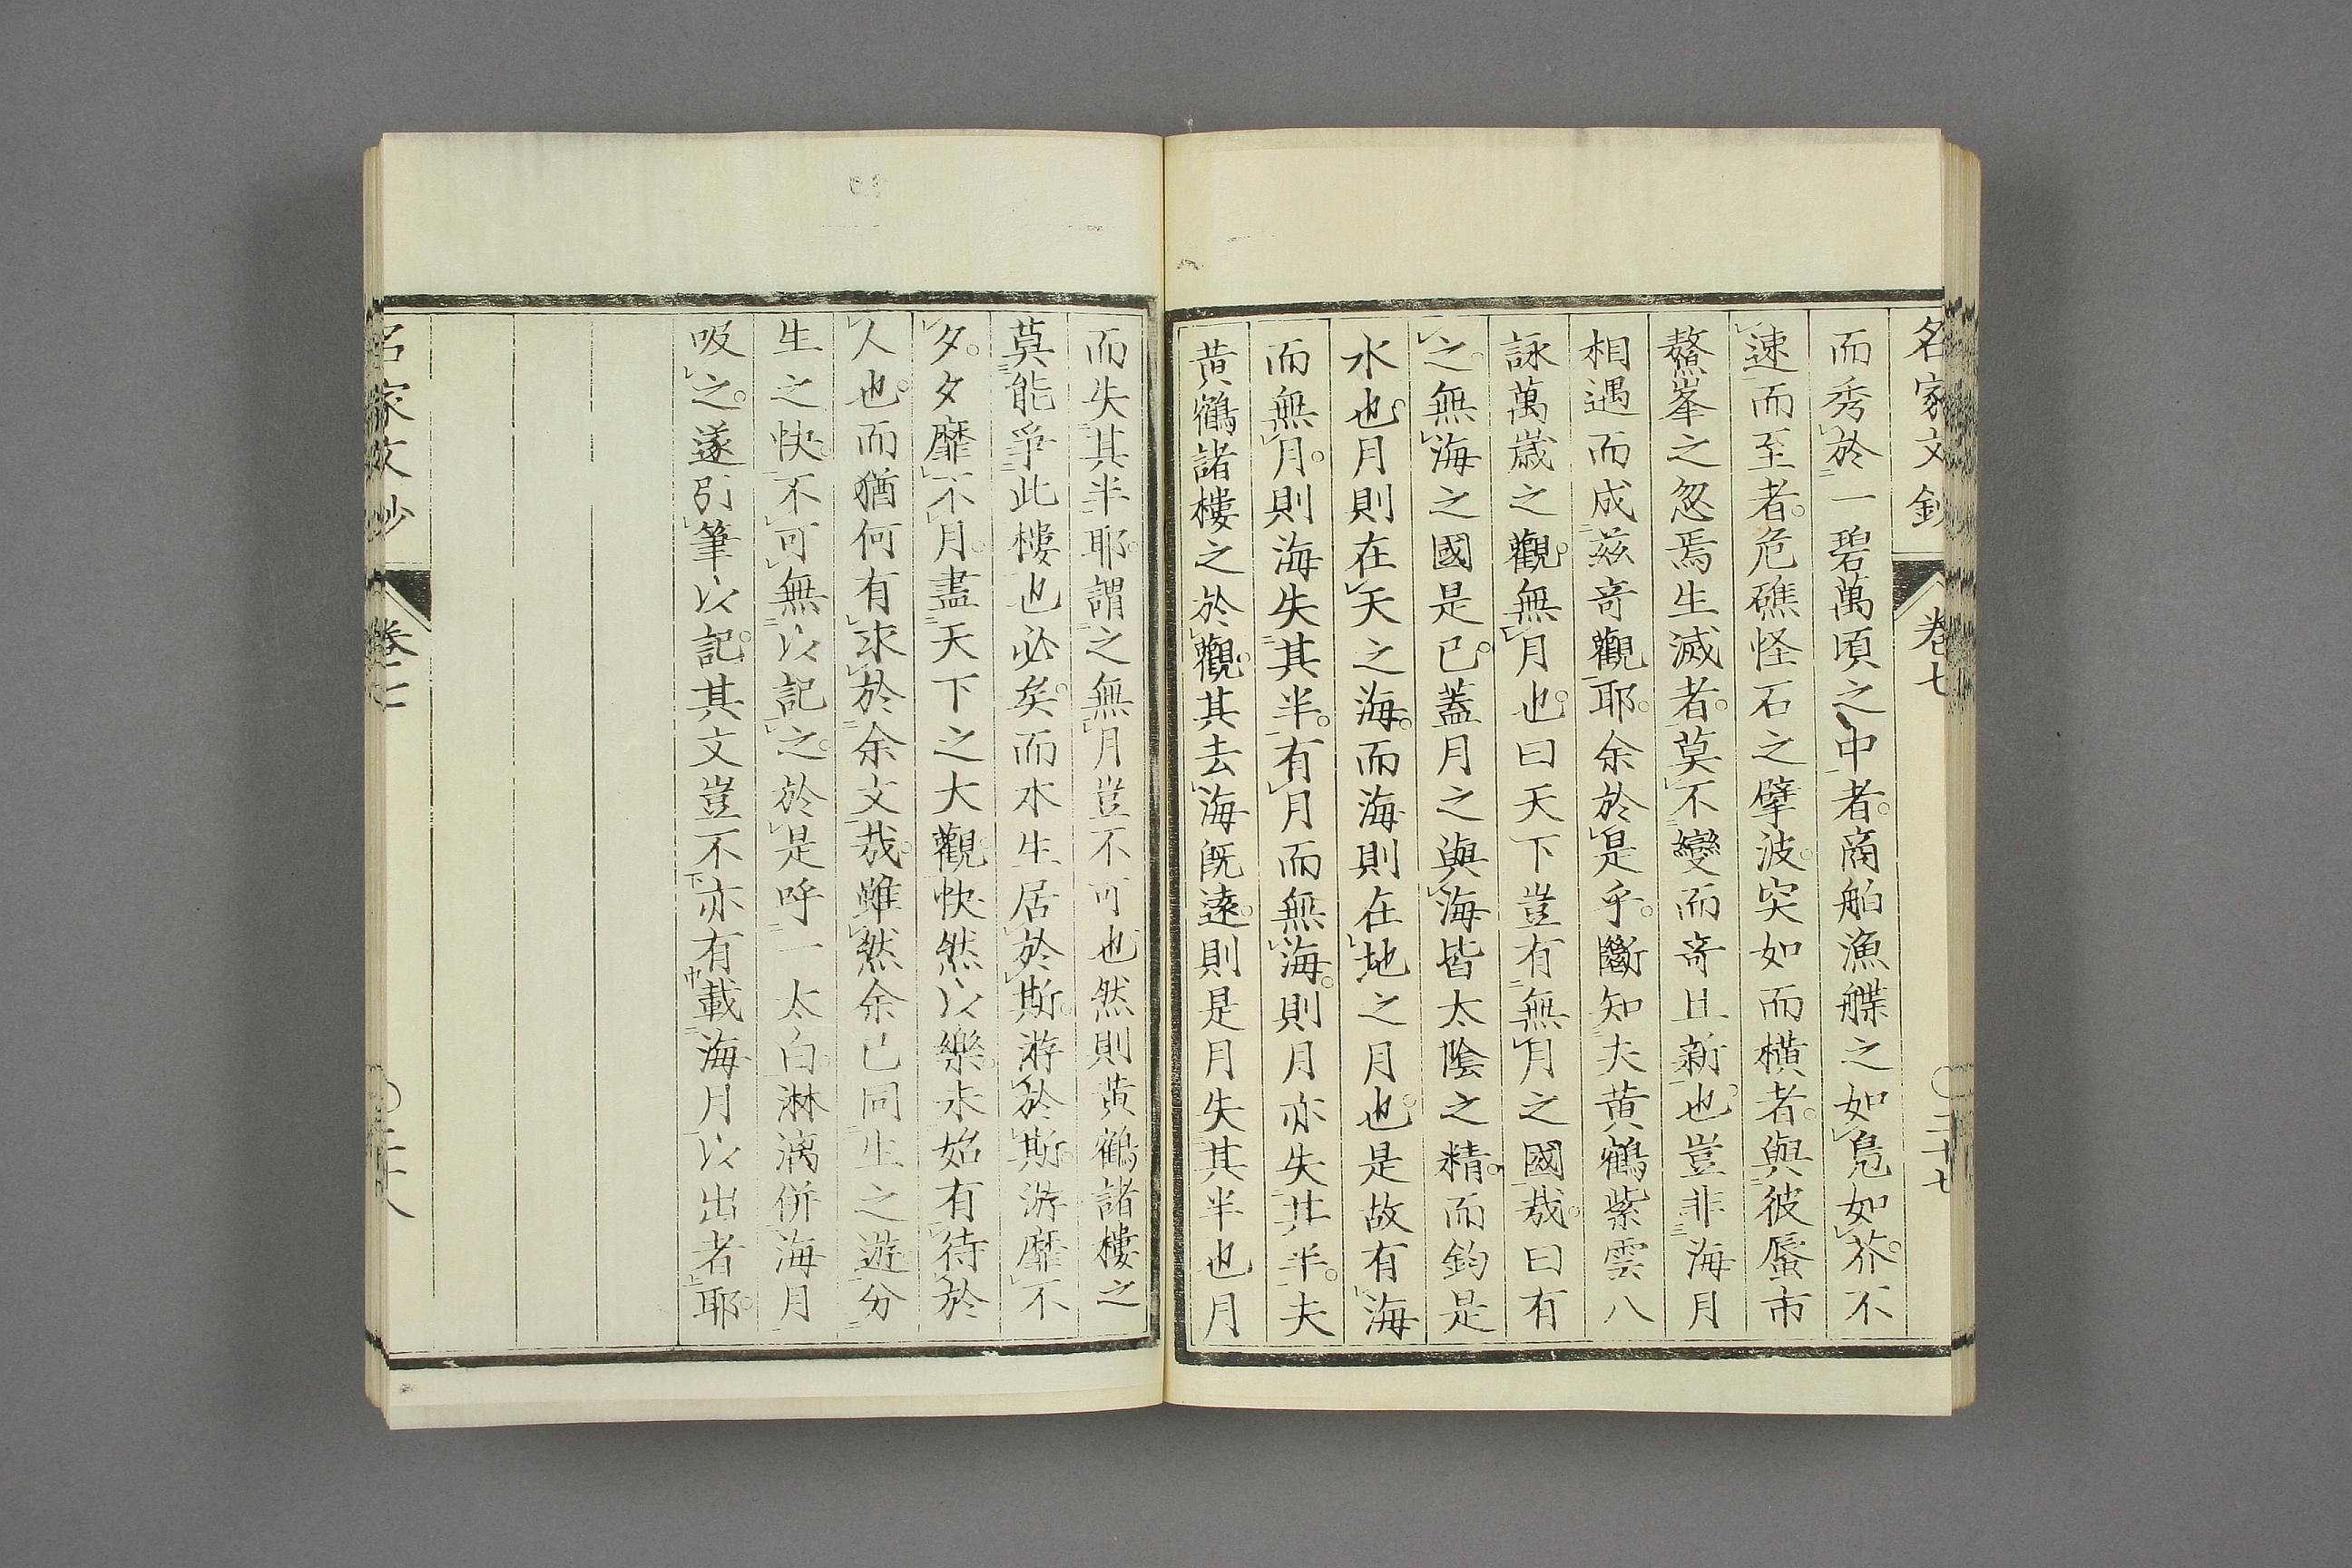 名家文鈔 卷七 二十七
而秀於一碧萬頃之中者。商舶漁艓之如鳧如芥。不
速而至者。危礁怪石之擘波。突如而橫者。與彼蜃市
鰲峯之忽焉生滅者。莫不變而奇且新也。豈非海月
相遇而成茲奇觀耶。余於是乎。斷知夫黃鶴紫雲八
詠萬歲之觀。無月也。曰天下豈有無月之國哉。曰有
之。無海之國是已。蓋月之與海皆太陰之精。而鈞是
水也。月則在天之海。而海則在地之月也。是故有海
而無月。則海失其半。有月而無海。則月亦失其半。夫
黃鶴諸樓之於觀。其去海既遠。則是月失其半也月
而失其半耶。謂之無月豈不可也然則黃鶴諸樓之
莫能爭此樓也必矣。而水生居於斯。游於斯。游靡不
夕。夕靡不月。盡天下之大觀。快然以樂。未始有待於
人也。而猶何有求於余文哉。雖然余已同生之遊。分
生之快。不可無以記之。於是呼一太白。淋漓併海月
吸之。遂引筆以記。其文豈不亦有載海月以出者耶。
名家文鈔 卷七 二十八